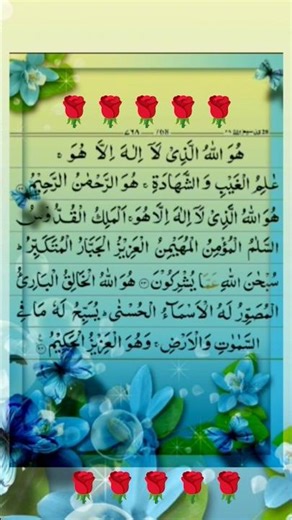 هُوَ اللهُ الَّذِىْ لَآ اِلٰهَ اِلَّا هُوَ ۚ
عٰلِمُ الْغَيْبِ وَ الشَّهَادَةِ ۚ هُوَ الرَّحْمٰنُ الرَّحِيْمُ
هُوَ اللهُ الَّذِىْ لَآ اِلٰهَ اِلَّا هُوَ ۚ اَلْمَلِكُ الْقُدُّوْسُ
السَّلٰمُ الْمُؤْمِنُ الْمُهَيْمِنُ الْعَزِيْزُ الْجَبَّارُ الْمُتَكَبِّرُ ؕ
سُبْحٰنَ اللهِ عَمَّا يُشْرِكُوْنَ هُوَ اللهُ الْخَالِقُ الْبَارِئُ
الْمُصَوِّرُ لَهُ الْاَسْمَآءُ الْحُسْنٰى ؕ يُسَبِّحُ لَهٗ مَا فِى
السَّمٰوٰتِ وَالْاَرْضِ ۚ وَهُوَ الْعَزِيْزُ الْحَكِيْمُ